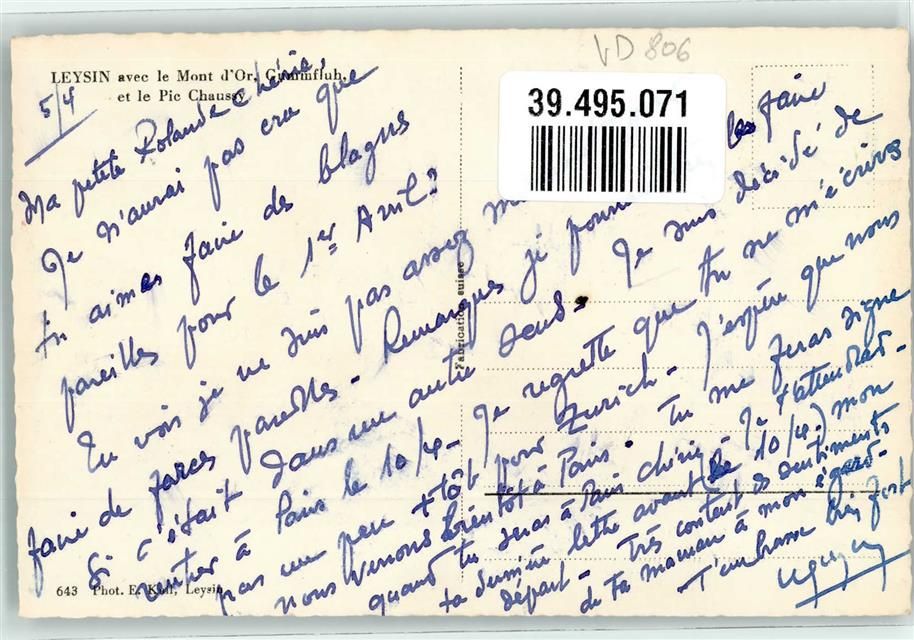 VD 806
LEYSIN avec le Mont d'Or, Gummfluh,
et le Pic Chaussy
39.495.071
5/4
Ma petite Rolande chérie,
Je n'aurai pas cru que
tu aimes faire des blagues
pareilles pour le 1er Avril?
Tu vois je ne suis pas assez
faire de farces pareilles - Remarques si je pourrai les faire
Si c'était dans un autre sens. Je suis décidé de
rentrer à Paris le 10/4 - Je regrette que tu ne m'écrives
pas un peu + tôt pour Zurich - J'espère que nous
nous verrons bientôt à Paris. Tu me feras signe
quand tu seras à Paris chérie - Je t'attendrai -
ta dernière lettre avant (le 10/4) mon
départ - Très content des sentiments
de ta maman à mon égard -
- T'embrasse bien fort
Fabrication suisse
643 Phot. E. Kull, Leysin